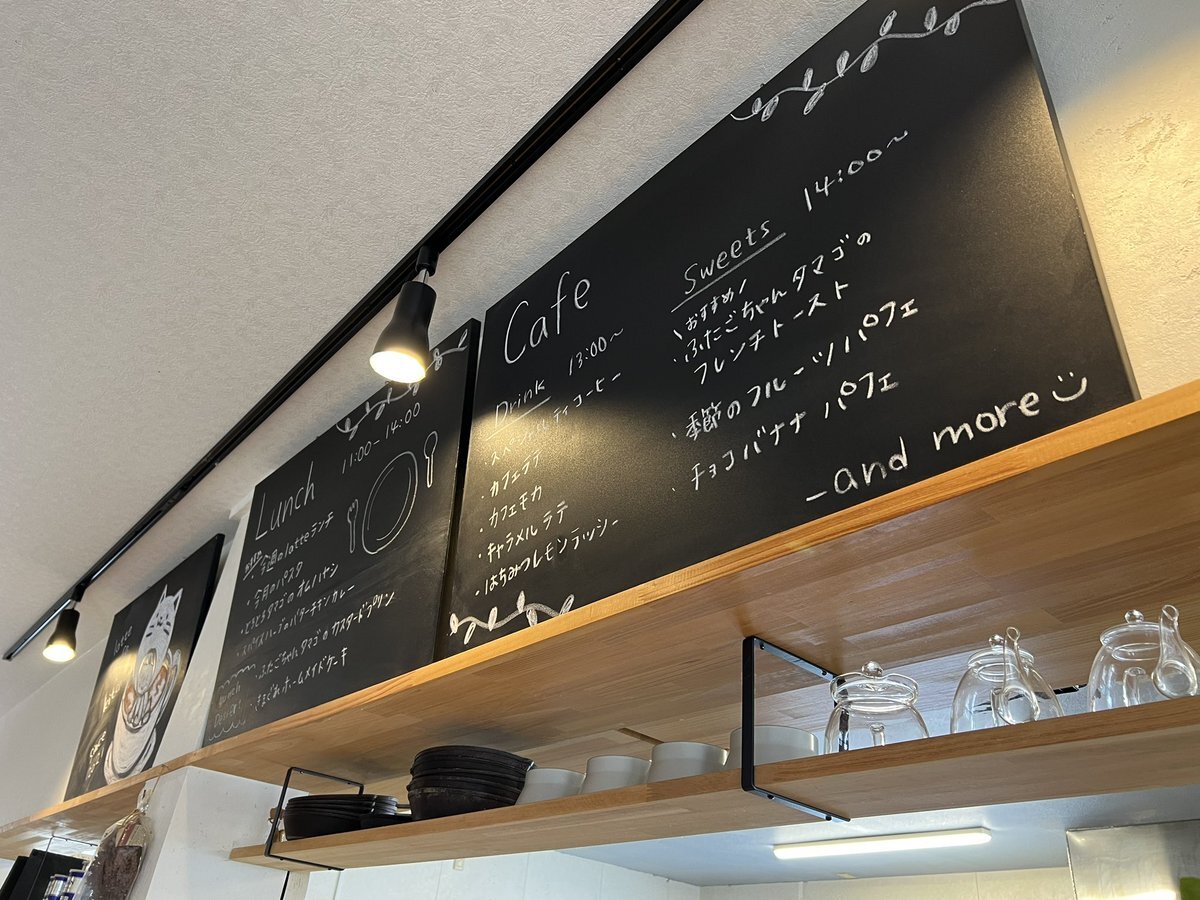 Latte
Lunch
11:00-14:00
今週のlatteランチ
・今月のパスタ
・とろとろタマゴのオムハヤシ
・スパイスハーブのバターチキンカレー
Lunch
Dessert
・ふたごちゃんタマゴのカスタードプリン
・きまぐれホームメイドケーキ
Cafe
Drink 13:00〜
・スペシャルティコーヒー
・カフェラテ
・カフェモカ
・キャラメルラテ
・はちみつレモンラッシー
Sweets 14:00〜
\おすすめ/
・ふたごちゃんタマゴの
フレンチトースト
・季節のフルーツパフェ
・チョコバナナパフェ
-and more